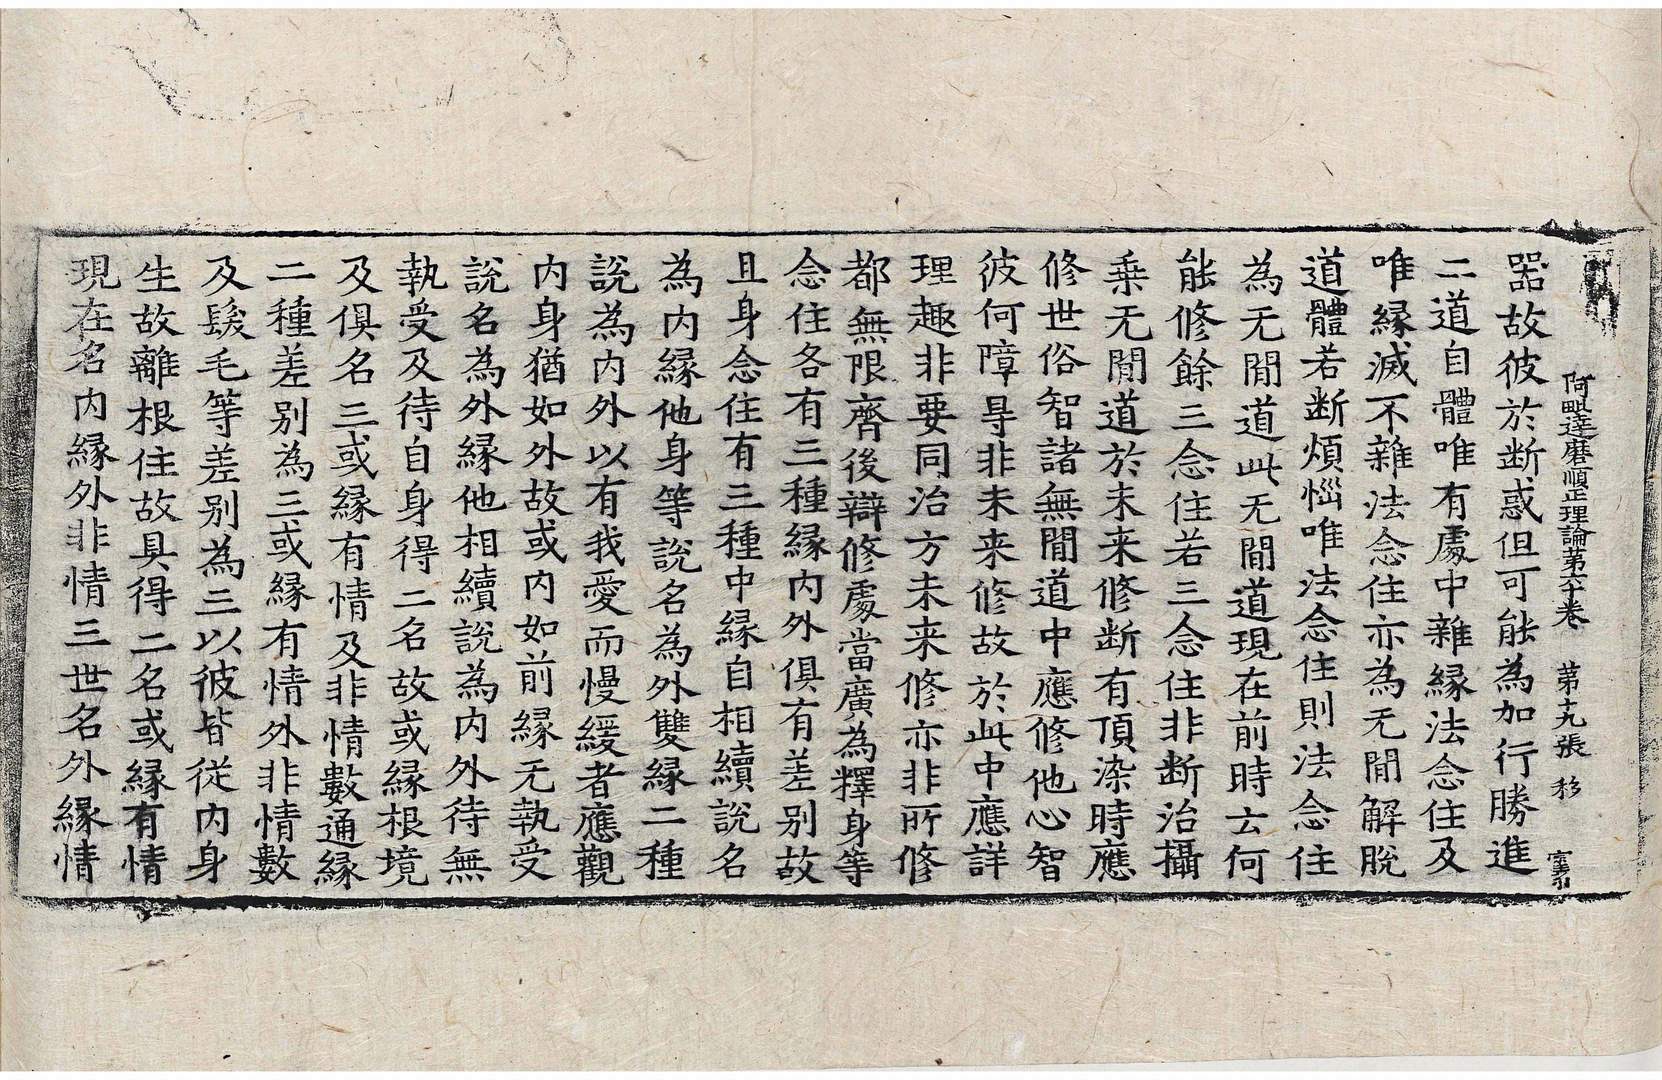 阿毗達磨順正理論第六十卷 第十九張 移
器故彼於断惑但可能為加行勝進
二道自體唯有處中雜緣法念住及
唯緣滅不雜法念住亦為无間解脫
道體若断煩惱唯法念住則法念住
為无間道此无間道現在前時云何
能修餘三念住若三念住非断治攝
乗无間道於未来修断有頂染時應
修世俗智諸無間道中應修他心智
彼何障㝵非未来修故於此中應詳
理趣非要同治方未来修亦非所修
都無限齊後辯修處當廣為釋身等
念住各有三種緣内外俱有差别故
且身念住有三種中緣自相續說名
為内緣他身等說名為外雙緣二種
說為内外以有我愛而慢緩者應觀
内身猶如外故或内如前緣无執受
說名為外緣他相續說為内外待無
執受及待自身得二名故或緣根境
及俱名三或緣有情及非情數通緣
二種差别為三或緣有情外非情數
及髮毛等差别為三以彼皆従内身
生故離根住故具得二名或緣有情
現在名内緣外非情三世名外緣情